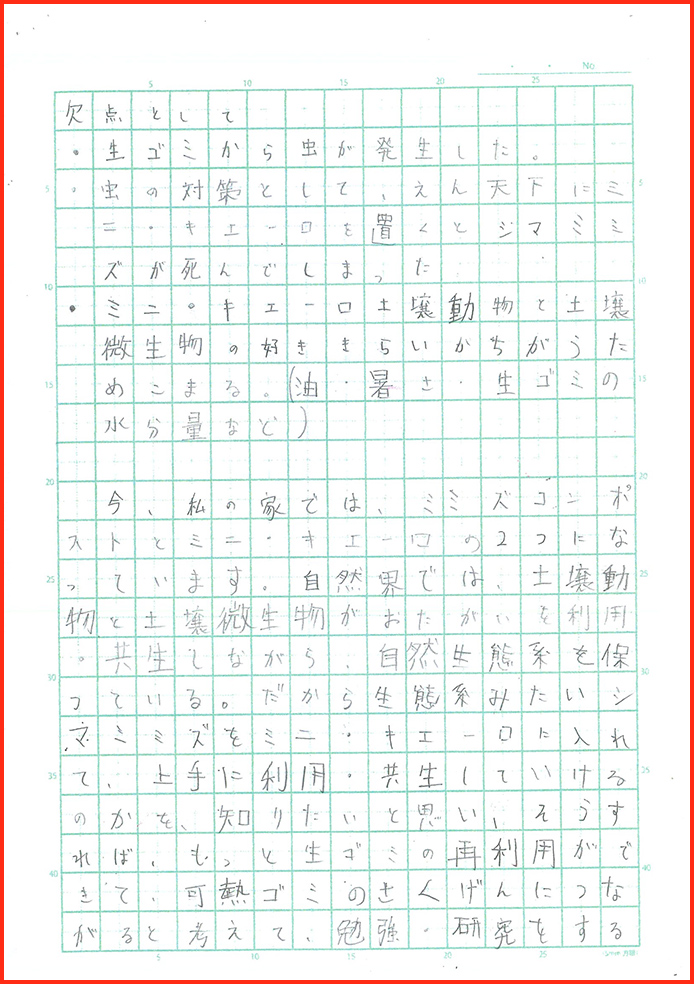 No.
欠点として
・生ゴミから虫が発生した。
・虫の対策として、えん天下にミ
ニ・キエーロを置くとシマミミ
ズが死んでしまった
・ミニ・キエーロ土壌動物と土壌
微生物の好ききらいがちがうた
めこまる。(油・暑さ・生ゴミの
水分量など)
今、私の家では、ミミズコンポ
ストとミニ・キエーロの2つにな
っています。自然界では、土壌動
物と土壌微生物がおたがいを利用
・共生しながら、自然生態系を保
っている。だから生態系みたいシ
マミミズをミニ・キエーロに入れ
て、上手に利用・共生していける
のかを、知りたいと思い、そうす
れば、もっと生ゴミの再利用がで
きて、可熱ゴミのさくげんにつな
がると考えて、勉強・研究をする